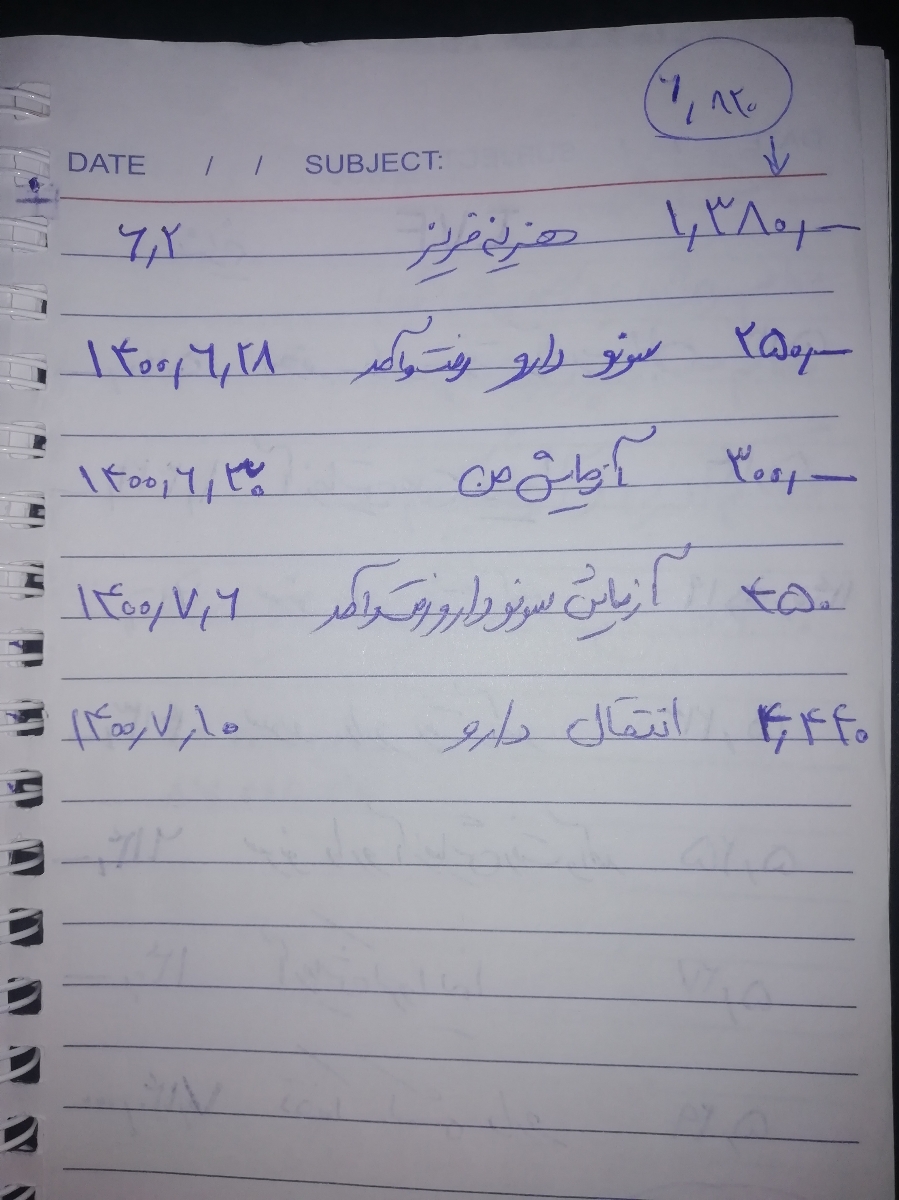 ۶,۸۲۰
DATE / / SUBJECT:
۱,۳۸۰,— هزینه فریز ۶,۲
۲۵۰,— سونو دارو رفت و آمد ۱۴۰۰,۶,۲۸
۳۰۰,— آزمایش من ۱۴۰۰,۶,۳۰
۴۵۰ آزمایش سونو دارو رفت و آمد ۱۴۰۰,۷,۶
۴,۴۴۰ انتقال دارو ۱۴۰۰,۷,۱۰